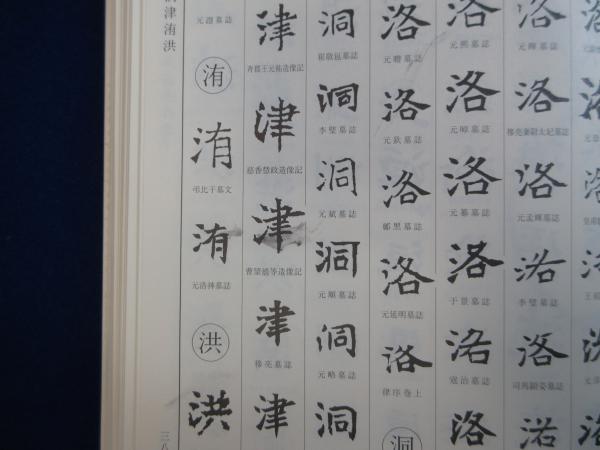 洛
元暉墓誌
洛
穆亮妻尉太妃墓誌
洛
元孟輝墓誌
洛
李璧墓誌
洛
司馬顯姿墓誌
洛
洛
元熙墓誌
洛
洛
元纂墓誌
洛
于景墓誌
洛
寇治墓誌
洛
洛
元瞻墓誌
洛
元欽墓誌
洛
洛
元延明墓誌
洛
律序卷上
洞
洞
崔敬邕墓誌
洞
李璧墓誌
洞
元斌墓誌
洞
元順墓誌
洞
元略墓誌
洞
津
齊郡王元祐造像記
津
慈香慧政造像記
津
曹望憘等造像記
津
穆亮墓誌
津
洧
洧
弔比干墓文
洧
元洛神墓誌
洪
洪
津洧洪
三八